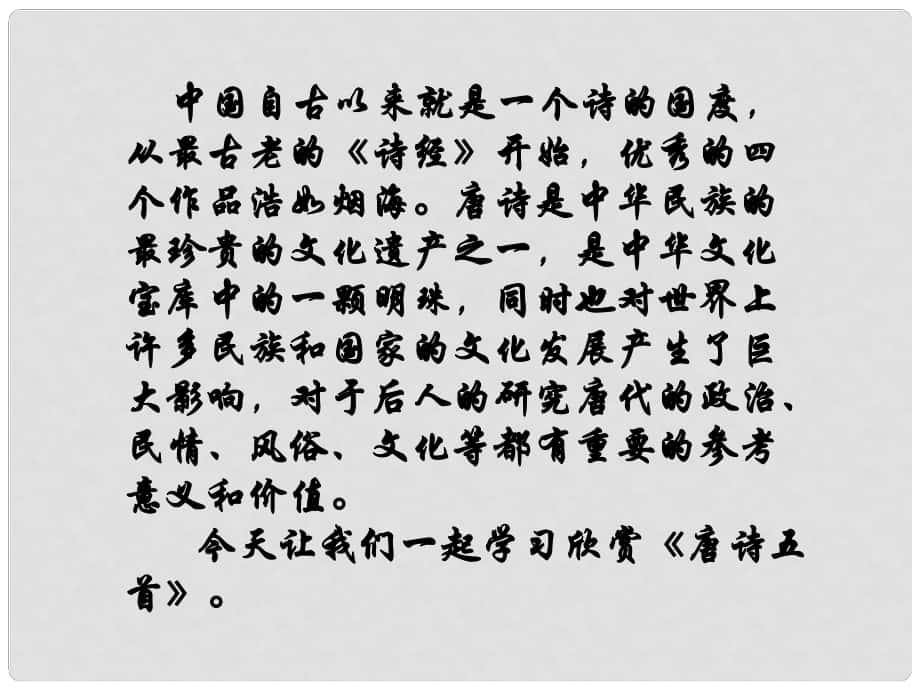 中国自古以来就是一个诗的国度，
从最古老的《诗经》开始，优秀的四
个作品浩如烟海。唐诗是中华民族的
最珍贵的文化遗产之一，是中华文化
宝库中的一颗明珠，同时也对世界上
许多民族和国家的文化发展产生了巨
大影响，对于后人的研究唐代的政治、
民情、风俗、文化等都有重要的参考
意义和价值。
今天让我们一起学习欣赏《唐诗五
首》。